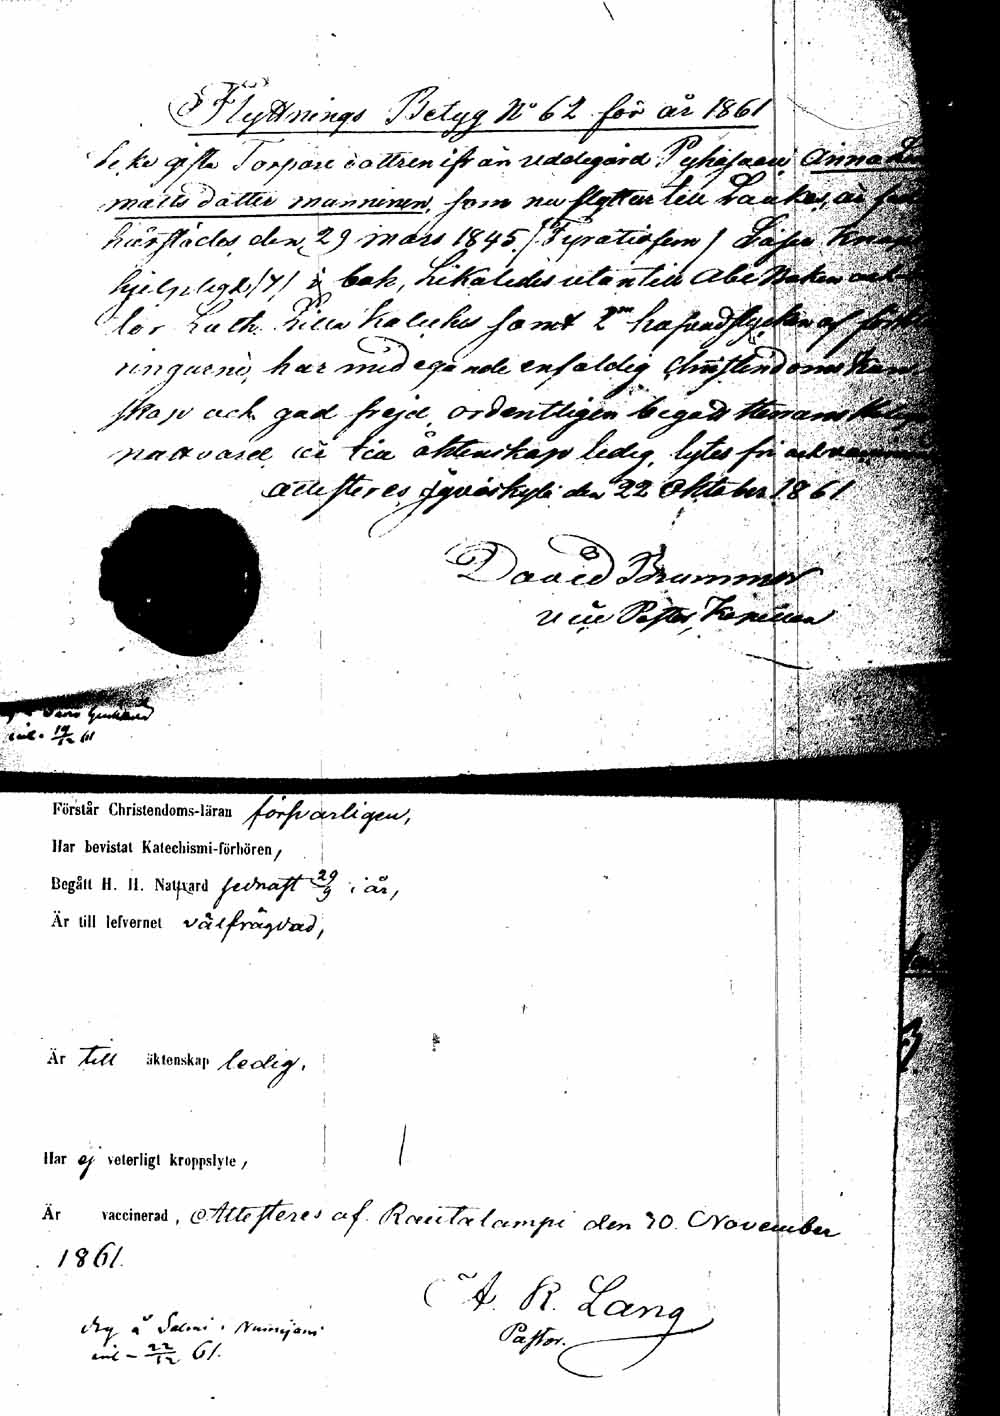 Flyttnings Betyg No 62 för år 1861
gifta Torpare dottren ifrån uddegård Pyhäsaari Anna
matts dotter manninen, som nu flyttar till Laukas, är född
härstädes den 29 mars 1845. Läser
hjelpligt i bok, likaledes utantill Abc Boken och
Luth. Lilla Kateches samt 2 hufvudstycken af
har med egande enfaldig Christendoms
skap och god frejd, ordentligen begått Herrans Helga
nattvard, är till äktenskap ledig, lytes fri och
attesteras Jyväskylä den 22 Oktober 1861
David Brummer
vice Pastor, Kapellan
19/12 61
Förstår Christendoms-läran försvarligen,
Har bevistat Katechismi-förhören,
Begått H. H. Nattvard sednast 29/9 i år,
Är till lefvernet välfrägdad,
Är till äktenskap ledig.
Har ej veterligt kroppslyte,
Är vaccinerad, Attesteras af Rautalampi den 30 November
1861.
A. R. Lang
Pastor.
å Salmi i
22/12 61.